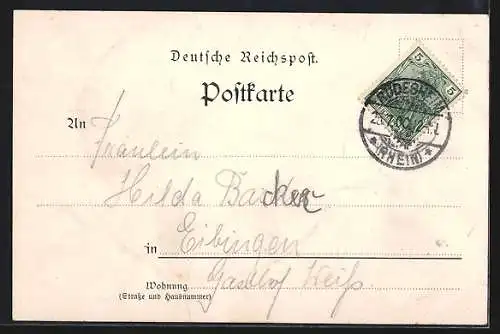 Deutsche Reichspost.
Postkarte
5 5
RÜDESHEIM
(RHEIN)
An Fräulein
Hilda Backer
in Eibingen
Gasthof Weiß
Wohnung
(Straße und Hausnummer)